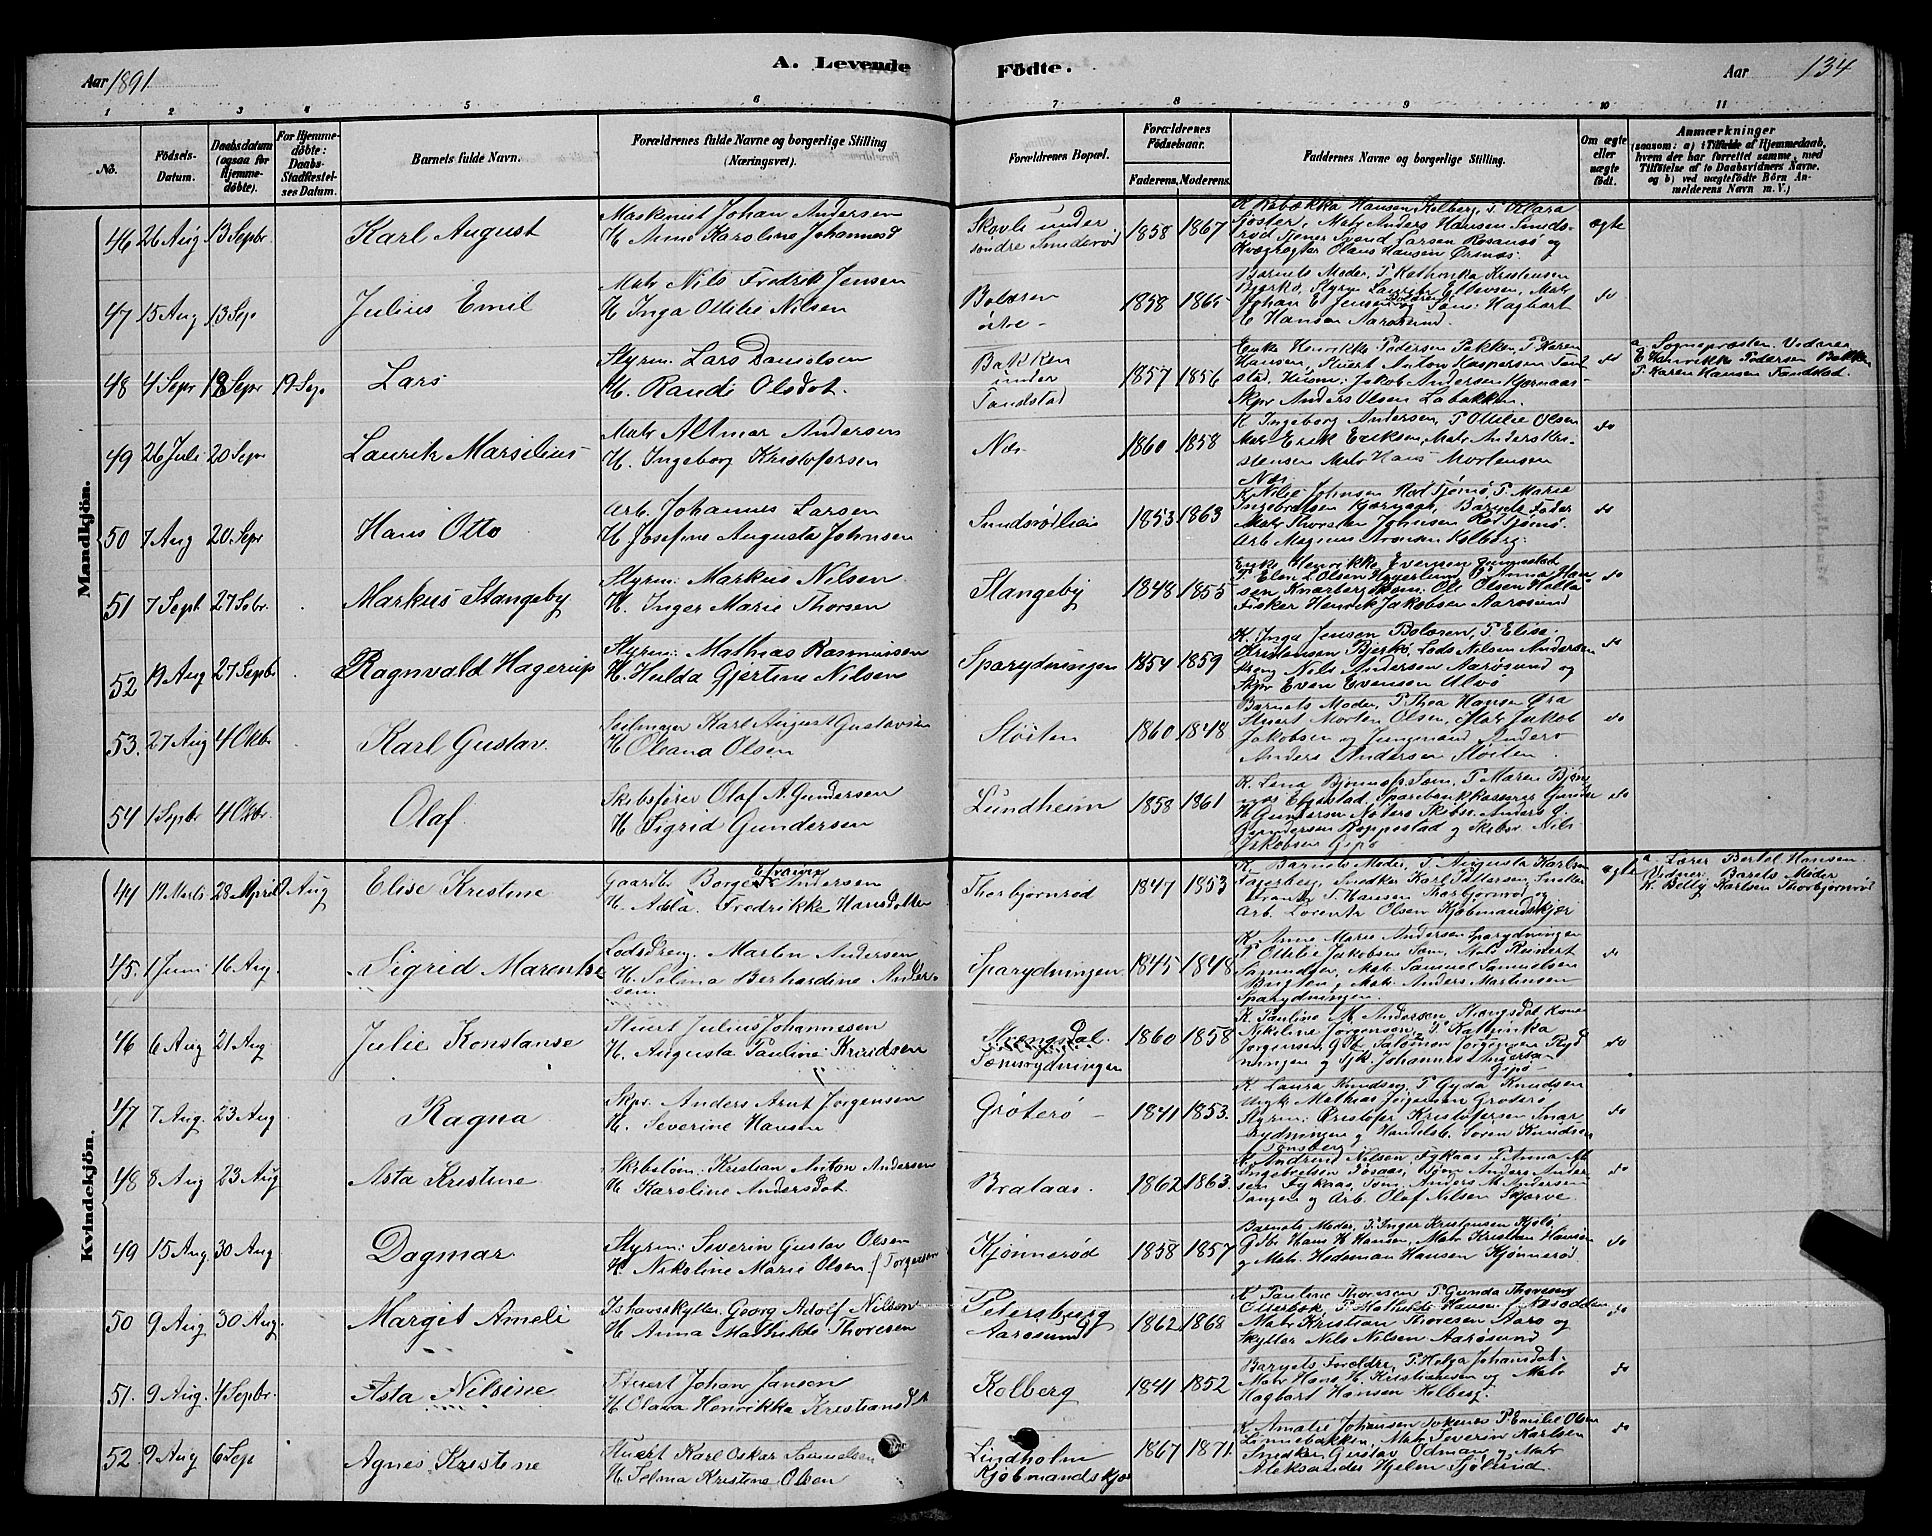 Aar 1891
A. Levende
Födte.
Aar 134
1 2 3 4 5 6 7 8 9 10 11
No.
Födsels-Datum.
Daabsdatum (ogsaa for Hjemme-döbte).
For Hjemme-döbte: Daabs-Stadfæstel-ses Datum.
Barnets fulde Navn.
Forældrenes fulde Navne og borgerlige Stilling (Næringsvei).
Forældrenes Bopæl.
Forældrenes Födselsaar.
Faderens. Moderens.
Faddernes Navne og borgerlige Stilling.
Om ægte eller uægte födt.
Anmærkninger (saasom: a) i Tilfælde af Hjemmedaab, hvem der har forrettet samme, med Tilföielse af to Daabsvidners Navne. og b) ved uægtefödte Börn An-melderens Navn m. V.)
Mandkjön.
46 26 Aug 13 Sepbr. Karl August
Maskinist Johan Andersen
H. Anne Karoline Johannesd
Skovli under
søndre Smiderød
1858 1867
K. Rebækka Hansen Kolberg, P. Klara
Sjøster, Matr Anders Hansen Smids-
rød Tjener Svend Larsen Rosanes og
Kvægrøgter Olaus Hansen Ørsnes.
ægte
47 15 Aug 13 Sep Julius Emil
Matr Nils Fredrik Jensen
H Inga Ottilie Nilsen
Bolæren
østre
1858 1865
Barnets Moder, P. Kathinka Kristensen
Bjerkø, Styrm Laurits Ellevsen, Matr
Johan E Jensen Bolæren og Tøm: Hagbart
E Hansen Aarøsund.
do
48 4 Sepr 18 Sepr 19 Sep Lars
Styrm: Lars Danielsen
H. Randi Olsdot.
Bakken
under
Tandstad
1857 1856
Enke Henrikke Pedersen Bakken, P. Karen
Hansen, Stuert Anton Kaspersen Tand
stad, Husm: Jakob Andersen Kjærnaas-
Skpr Anders Olsen Labakken.
do
a. Sognepræsten. Vidner
E Henrikke Pedersen Bakken
P. Karen Hansen Tandstad.
49 26 Juli 20 Sepr Laurits Marsilius
Matr Altmar Andersen
H. Ingeborg Kristofersen
Næs
1860 1858
K Ingeborg Andersen, P Ottilie Olsen
Matr Erik Eriksen, Matr Anders Kri-
stensen Matr Hans Mortensen
Næs
do
50 7 Aug 20 Sepr Hans Otto
Arb. Johannes Larsen
H Josefine Augusta Johnsen
Smidsrødhei
1853 1863
K. Nilie Johnsen Rød Tjømø, P. Marie
Ingebretsen Kjærnaas, Barnets Fader
Matr Thorsten Johnsen Rød Tjømø.
Arb Magnus Iversen Kolberg.
do
51 7 Septb 27 Sebr. Markus Stangeby
Styrm: Markus Nilsen
H. Inger Marie Thorsen
Stangeby
1848 1855
Enke Henrikke Evensen
P. Elen L Olsen P Anna Han
sen Knarberg Skom: Ole Olsen Holta
Fisker Henrik Jakobsen Aarøsund
do
52 19 Aug 27 Sepbr Ragnvald Hagerup
Styrm: Mathias Rasmussen
H. Hulda Gjertine Nilsen
Sparydningen
1854 1859
K. Inga Jensen Bolæren, P. Elise
Kristensen Bjerkø, Lods Nilsen Andersen
Dreng Nils Andersen Aarøsund og
Skpr Even Evensen Ulvø
do
53. 27 Aug 4 Okbr Karl Gustav.
Seilmager Karl August Gustavsen
H Oleana Olsen
Sløiten
1860 1848
Barnets Moder, P. Thea Hansen Øra
Stuert Morten Olsen, Matr Jakob
Jakobsen og Jungmand Anders
Anders Andersen Sløiten.
do
54 1 Sepbr 4 Okbr. Olaf.
Skibsfører Olaf A. Gundersen
H Sigrid Gundersen
Lundheim
1858 1861
K. Lena Bjønnæs Sem, P. Maren Bjøn
næs Elgestad, Sparebankkasserer Gunder
H Gundersen Nøtterø Skibsr. Anders G.
Gundersen Røppestad og Skibsr. Nils
Jakobsen Gipø
do
Kvindekjön.
44 19 Marts 28 April 9 Aug Elise Kristine
Gaardb. Børge Efraim Andersen
H. Adla Fredrikke Hansdatter
Thorbjørnrød
1847 1853
K. Barnets Moder, P. Augusta Karlsen
Fagerberg, Snedker Karl Pettersen, Snedker
Frants T. Hansen Thorbjørnrød og
Arb. Lorents Olsen Kjøbmandskjær
ægte
a Lærer Bertel Hansen.
Vidner: Barets Moder
K. Betty Karlsen Thorbjørnrød
45. 1 Juni 16 Aug. Sigrid Marentse
Lodsdreng. Martin Andersen
H. Selma Berhardine Ander-
sen.
Sparydningen
1845 1848
K. Anne Marie Andersen Sparydningen
P Ottilie Jakobsen Sem, Matr Reinert
Samuelsen, Matr. Samuel Samuelsen
Brigten, Matr. Anders Martinsen
Sparydningen.
do
46 6 Aug 21 Aug. Julie Konstanse
Stuert Julius Johannesen
H. Augusta Pauline Knudsen
Strengsdal.
Tømsrydningen
1860 1858
K. Pauline M. Andersen Strengsdal Kone
Nikoline Jørgensen, P. Kathinka
Jørgensen, Gb. Salomon Jørgensen Ryd
ningen og Sjk. Johannes Ingersen
Gipø
do
47 7 Aug. 23 Aug. Ragna
Skpr. Anders Arnt Jørgensen
H. Severine Hansen
Grøterø
1841 1853.
K. Laura Knudsen, P Gyda Knudsen
Ungk Mathias Jørgensen Grøterø
Styrm: Kristofer Kristofersen Smør
rydningen og Handelsb. Søren Knudsen
Tønsberg
do
48 8 Aug 23 Aug Asta Kristine
Skibstøm: Kristian Anton Andersen
H Karoline Andersdot.
Brataas.
1862 1863.
K. Andrine Nilsen, Fykaas P. Anna M.
Ingebretsen Føsaas, Tjøm Anders Ander
sen Fykaas, Tøm: Anders M. Andersen
Tangen og Arb. Olaf Nilsen Skjerve.
do
49 15 Aug. 30 Aug Dagmar
Styrm: Severin Gustav Olsen
H. Nikoline Marie Olsen. f. Torgersen
Kjønnerød
1858 1857
Barnets Moder, P. Inger Kristensen Kjølø,
Gdb. Hans H Hansen, Matr Kristian Hansen
og Matr. Hedeman Hansen Kjønnerød
do
50 9 Aug 30 Aug. Margit Ameli
Ishavsskytter Georg Adolf Nilsen
H Anna Mathilde Thoresen
Petersborg
Aarøsund
1862 1868
K Pauline Thoresen P. Gunda Thoresen
Otterbæk, P. Mathilde Hansen Næsodden
Matr Kristian Thoresen Aarø og
Skytter Nils Nilsen Aarøsund
do
51. 9 Aug. 4 Sepbr. Asta Nilsine
Stuert Johan Jansen
H Olava Henrikka Kristiansdt
Kolberg
1841 1852
Barnets Foreldre, P. Helga Johansdat.
Matr Hans H. Kristiansen og Matr
Hagbart Hansen Kolberg.
do
52 9 Aug 6 Sep Agnes Kristene
Stuert Karl Oskar Samuelsen
H. Selma Kristene Olsen
Lindholm
Kjøbmandskjær
1867 1871
K Amalie Johansen Jokenes P. Emilie Olsen
Linnebakken, Matr Severin Karlsen
Smidsker Gustav Ødman og Matr
Aleksander Hjelm Sjølund.
do